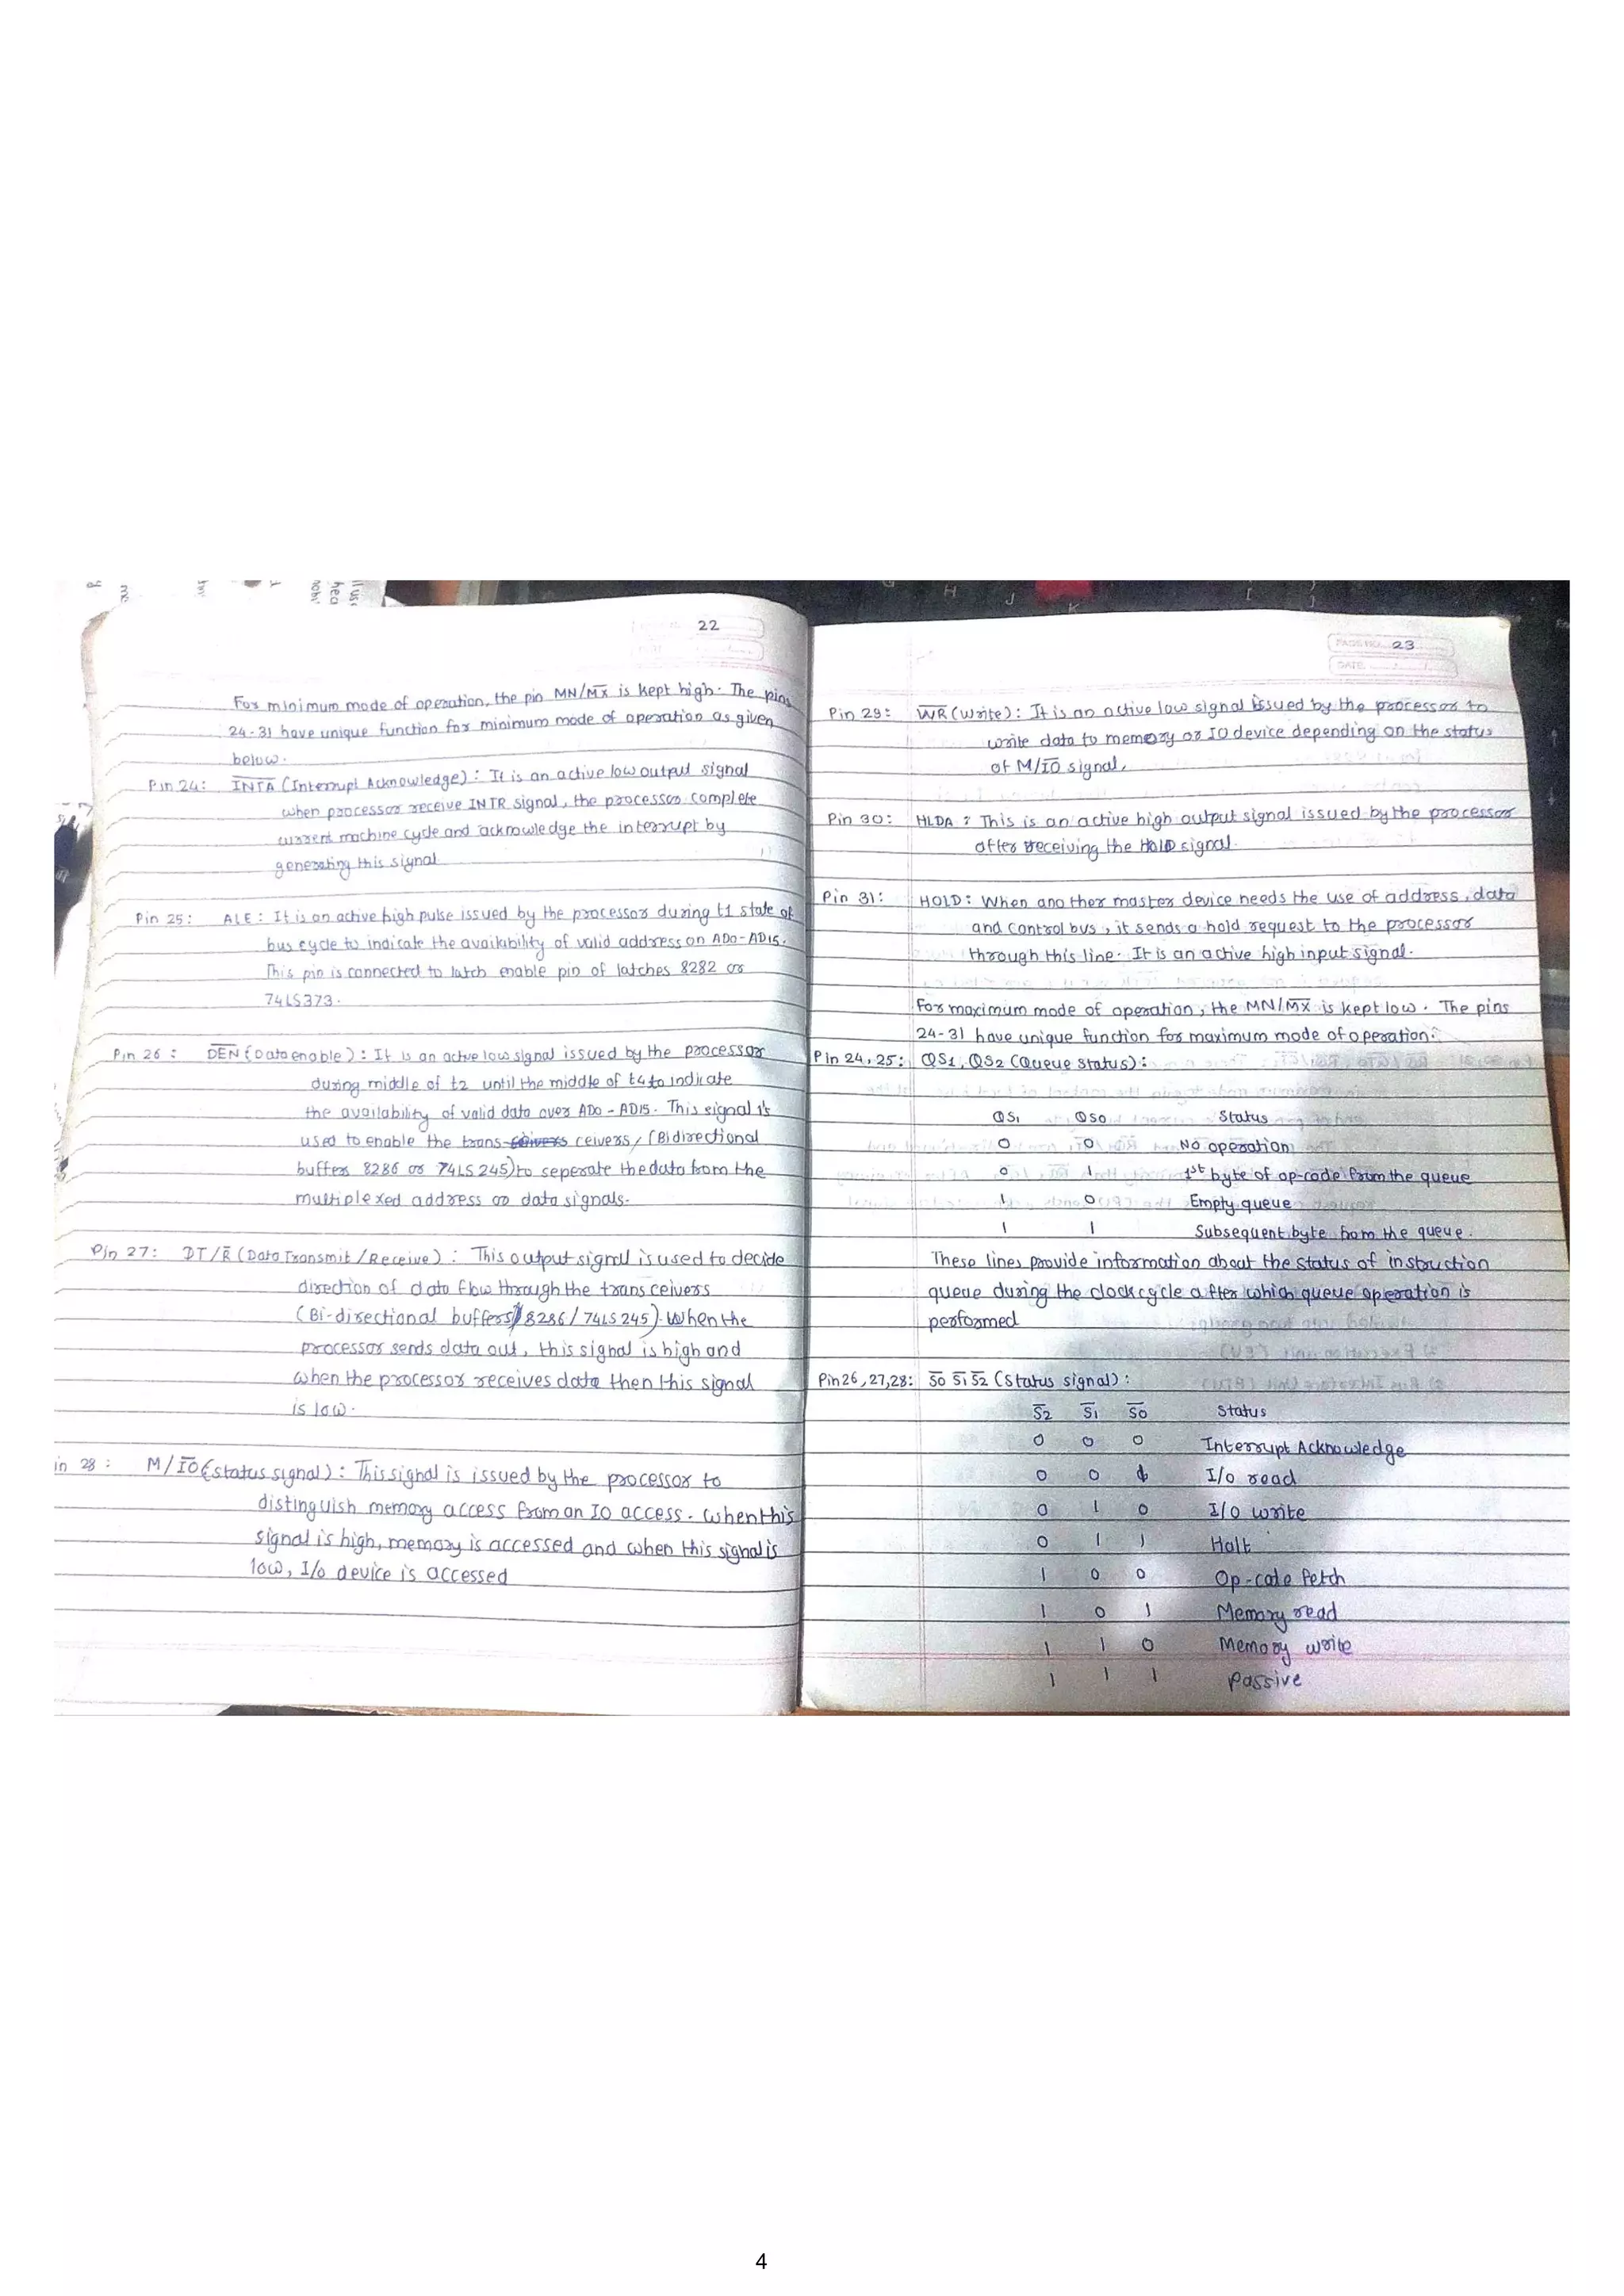 22
For minimum mode of operation, the pin MN/M̅X̅ is kept high. The pins
24-31 have unique function for minimum mode of operation as given
below.
Pin 24: I̅N̅T̅A̅ (Interrupt Acknowledge) : It is an active low output signal
when processor receive INTR signal, the processor complete
current machine cycle and acknowledge the interrupt by
generating this signal
Pin 25: ALE : It is an active high pulse issued by the processor during t1 state of
bus cycle to indicate the availability of valid address on AD0-AD15.
This pin is connected to latch enable pin of latches 8282 or
74LS373.
Pin 26 : D̅E̅N̅ (Data enable) : It is an active low signal issued by the processor
during middle of t2 until the middle of t4 to indicate
the availability of valid data over AD0 - AD15. This signal is
used to enable the trans- ceivers, (Bidirectional
buffers 8286 or 74LS245) to seperate the data from the
multiplexed address or data signals.
Pin 27: DT/R̅ (Data Transmit / Receive) : This output signal is used to decide
direction of data flow through the trans ceivers
(Bi-directional buffers 8286 / 74LS245). When the
processor sends data out, this signal is high and
when the processor receives data then this signal
is low.
in 28 : M/I̅O̅ (status signal) : This signal is issued by the processor to
distinguish memory access from an IO access. when this
signal is high, memory is accessed and when this signal is
low, I/o device is accessed
PAGE NO. 23
DATE
Pin 29: W̅R̅ (write) : It is an active low signal issued by the processor to
write data to memory or IO device depending on the status
of M/I̅O̅ signal.
Pin 30: HLDA : This is an active high output signal issued by the processor
after receiving the HOLD signal.
Pin 31: HOLD: When ano ther master device needs the use of address, data
and control bus, it sends a hold request to the processor
through this line. It is an active high input signal.
For maximum mode of operation, the MN/M̅X̅ is kept low. The pins
24-31 have unique function for maximum mode of operation.
Pin 24, 25: QS1, QS2 (Queue status) :
QS1 QS0 Status
0 0 No operation
0 1 1st byte of op-code from the queue
1 0 Empty queue
1 1 Subsequent byte from the queue.
These lines provide information about the status of instruction
queue during the clock cycle after which queue operation is
performed
Pin 26, 27, 28: S̅0̅ S̅1̅ S̅2̅ (status signal) :
S̅2̅ S̅1̅ S̅0̅ Status
0 0 0 Interrupt Acknowledge
0 0 1 I/o read
0 1 0 I/o write
0 1 1 Halt
1 0 0 Op-code fetch
1 0 1 Memory read
1 1 0 Memory write
1 1 1 Passive
4